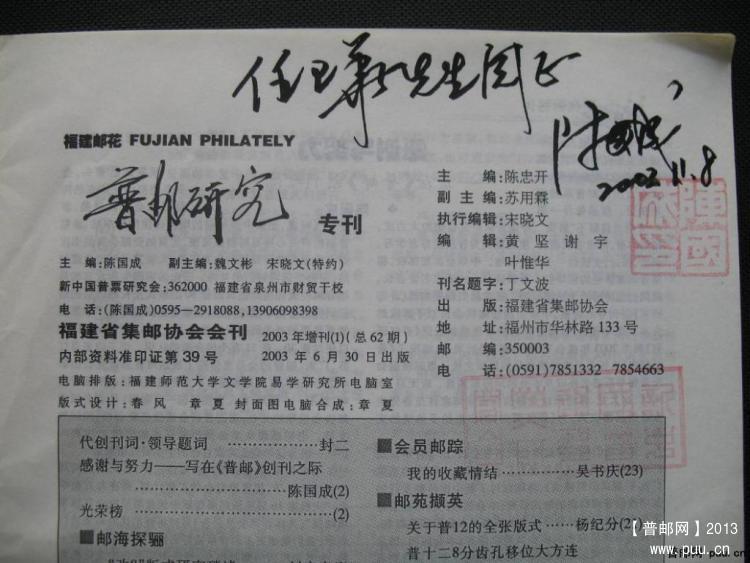 任卫新先生闰正
陈国成
2003.11.8
福建邮花 FUJIAN PHILATELY
普邮研究 专刊
主 编:陈国成 副主编:魏文彬 宋晓文(特约)
新中国普票研究会:362000 福建省泉州市财贸干校
电 话:(陈国成)0595—2918088,13906098398
福建省集邮协会会刊 2003年增刊(1)(总62期)
内部资料准印证第39号 2003年6月30日出版
电脑排版:福建师范大学文学院易学研究所电脑室
版式设计:春 风 章 夏 封面图电脑合成:章 夏
主 编:陈忠开
副 主 编:苏用霖
执行编辑:宋晓文
编 辑:黄 坚 谢 宇
叶惟华
刊名题字:丁文波
出 版:福建省集邮协会
地 址:福州市华林路133号
邮 编:350003
电 话:(0591)7851332 7854663
代创刊词·领导题词 ………………封二
感谢与努力——写在《普邮》创刊之际
………………………陈国成(2)
光荣榜 ……………………………(2)
■邮海探骊
■会员邮踪
我的收藏情结……………吴书庆(23)
■邮苑撷英
关于普12的全张版式……杨纪分
普十二8分齿孔移位大方连
【普邮网】2013
www.puu.cn